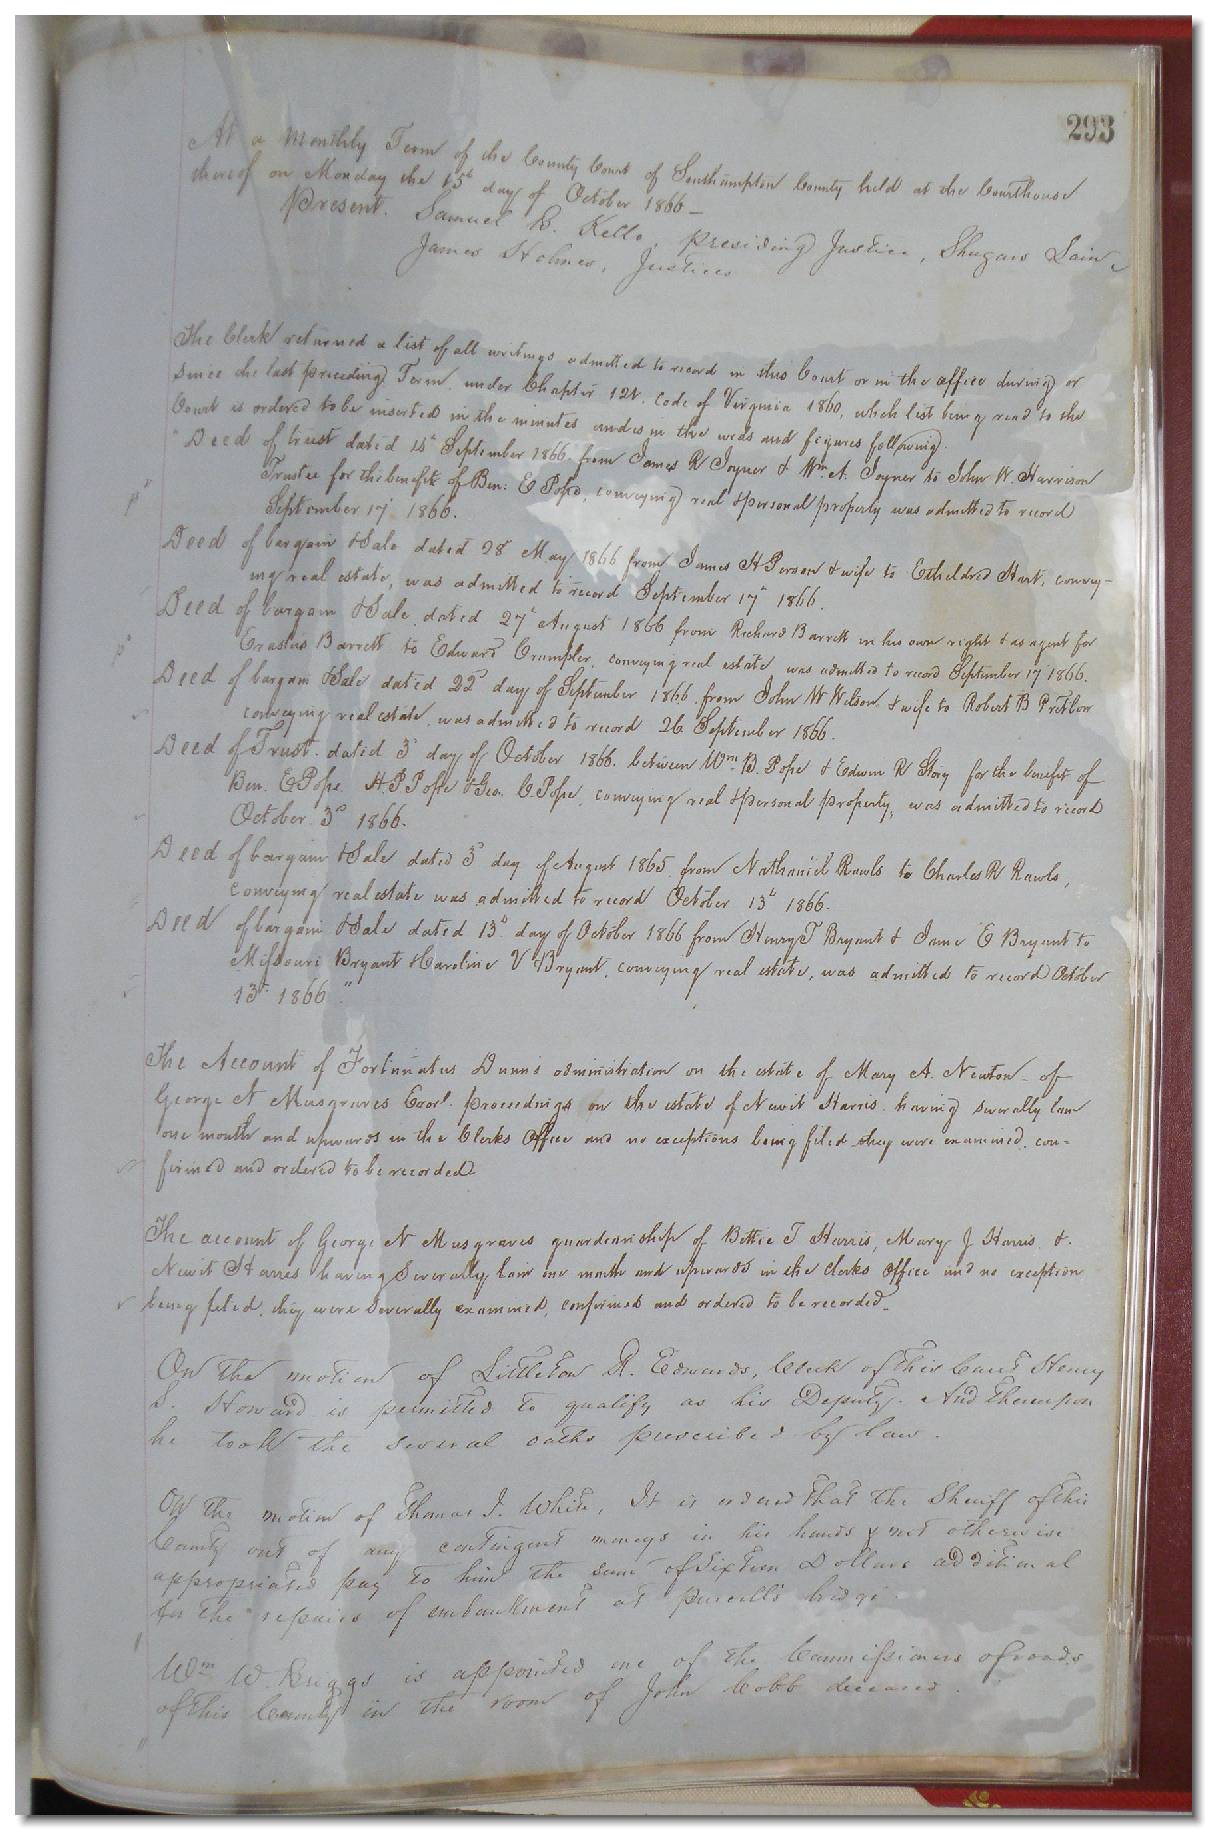 293
At a Monthly Term of the County Court of Southampton County held at the Courthouse
thereof on Monday the 15th day of October 1866—
Present. Samuel B. Kello, presiding Justice, Shugars Lain &
James Holmes, Justices
The Clerk returned a list of all writings admitted to record in this Court or in the office during or
since the last preceeding Term, under Chapter 121. Code of Virginia 1860, which list being read to the
Court is ordered to be inserted in the minutes and is in the words and figures following.
"Deed of trust dated 15th September 1866 from James R Joyner & Wm. A. Joyner to John W. Harrison
Trustee for the benefit of Ben: E Pope, conveying real & personal property was admitted to record
September 17 1866.
Deed of bargain & Sale dated 28th May 1866 from James H Person & wife to Etheldred Hart, convey-
ing real estate, was admitted to record September 17th 1866.
Deed of bargain & Sale, dated 27th August 1866 from Richard Barrett in his own right & as agent for
Erastus Barrett to Edward Crumpler, conveying real estate was admitted to record September 17 1866.
Deed of bargain & Sale dated 22d day of September 1866 from John W Wilson & wife to Robert B Pretlow
conveying real estate, was admitted to record 26 September 1866.
Deed of Trust dated 3d day of October 1866 between Wm B. Pope & Edwin R Story for the benefit of
Ben. E Pope H. P Pope & Geo. C Pope, conveying real & personal property, was admitted to record
October 3d 1866.
Deed of bargain & Sale dated 3d day of August 1865 from Nathaniel Rawls to Charles R Rawls,
conveying real estate was admitted to record October 13th 1866.
Deed of bargain & Sale dated 13th day of October 1866 from Henry T Bryant & Jane E Bryant to
Missouri Bryant & Caroline V Bryant, conveying real estate, was admitted to record October
13th 1866"
The Account of Fortunatus Dunns administration on the estate of Mary A. Newton of
George N Musgraves Exorl. proceedings on the estate of Newit Harris having severally lain
one month and upwards in the Clerks Office and no exceptions being filed they were examined, con-
firmed and ordered to be recorded
The account of George N Musgraves guardianship of Bettie T Harris, Mary J Harris &
Newit Harris having Severally lain one month and upwards in the clerks office and no exception
being filed, they were Severally examined, confirmed and ordered to be recorded.
On the motion of Littleton R. Edwards, Clerk of this Court Henry
S. Howard is permitted to qualify as his Deputy. And thereupon
he took the several oaths prescribed by law.
On the motion of Thomas J. White, It is ordered that the Sheriff of this
County out of any contingent moneys in his hands & not otherwise
appropriated pay to him the sum of Sixteen Dollars additional
for the repairs of embankment at Purcell's bridge.
Wm W. Briggs is appointed one of the Commissioners of roads
of this County in the room of John Cobb deceased.